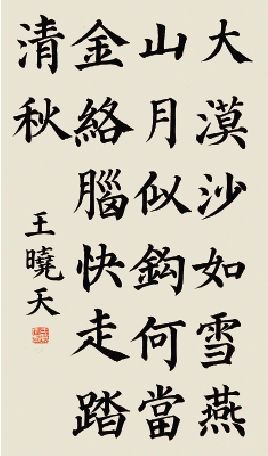 大漠沙如雪燕
山月似鈎何當
金絡腦快走踏
清秋
王曉天